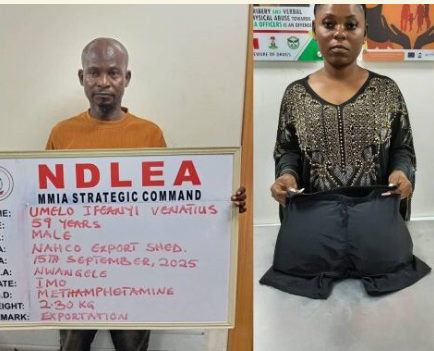 NDLEA
MMIA STRATEGIC COMMAND
ME: UMELO IFEANYI VENATIUS
E: 59 YEARS
MALE
A: NAHCO EXPORT SHED.
A: 15TH SEPTEMBER, 2025
.A NWANGELE
ATE: IMO
.D: METHAMPHETAMINE
EIGHT: 2.30 KG
MARK: EXPORTATION
BRIBERY AND VERBAL
PHYSICAL ABUSE TOWARDS
OFFICERS IS AN OFFENCE
BEWARE OF DRUGS